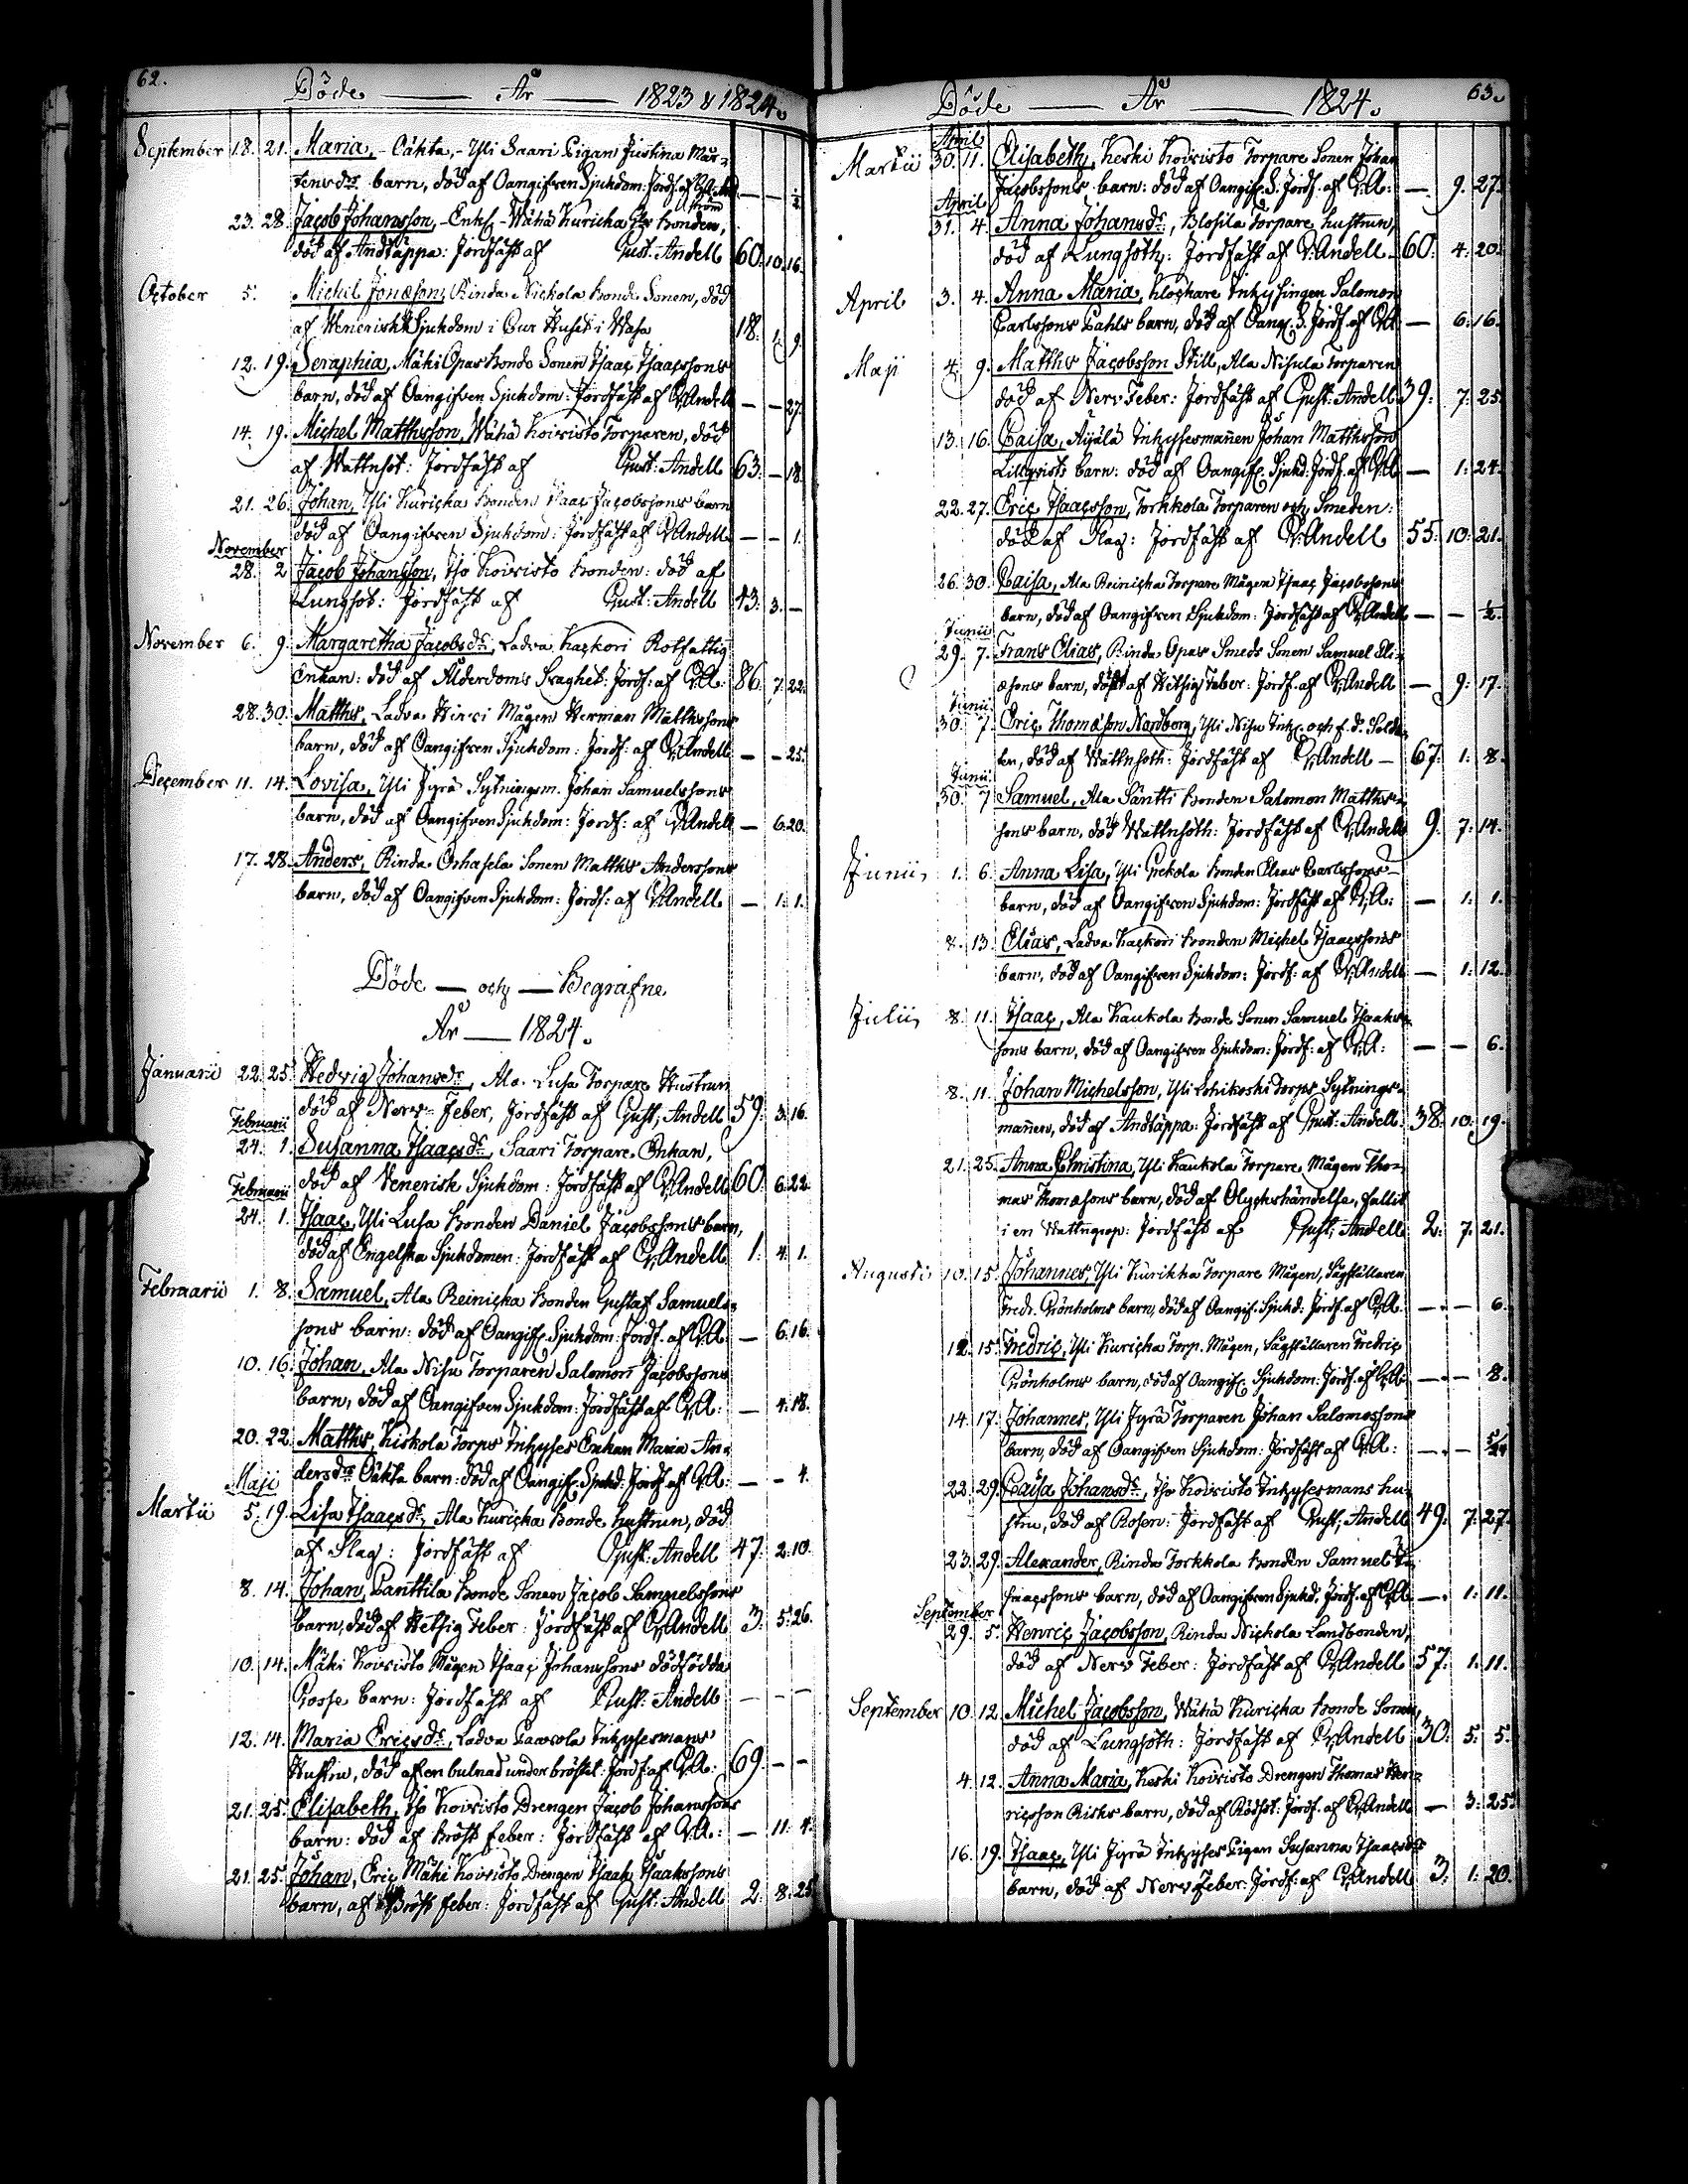 62.
Döde — År — 1823 & 1824.
September 18. 21. Maria, - Oäkta, - Yli Saari Pigan Justina Mår-
tensdr barn, död af Oangifven Sjukdom: Jordf. af — —
23. 28. Jacob Johansson, - Enkl. - Wähä Kuricka Bonden,
död af Andtäppa: Jordfäst af Gust: Andell 60. 10. 16.
October 5. Michel Jonæson, Rinda Nickola Bonde Sonen, död
af Venerisk Sjukdom i Cur Huset i Wasa 18. 1. 9.
12. 19. Seraphia, Mäki Opas Bonde Sonen Isaac Isaacssons
barn, död af Oangifven Sjukdom: Jordfäst af G: Andell — — 27.
14. 19. Michel Matthsson, Wähä Koivisto Torparen, död
af Wattusot: Jordfäst af Gust: Andell 63. — 18.
21. 26. Johan, Yli Kuricka Bonden Isaac Jacobssons barn
död af Oangifven Sjukdom: Jordfäst af G: Andell — — 1.
November
28. 2 Jacob Johansson, Iso Koivisto Bonden: död af
Lungsot: Jordfäst af Gust: Andell 43. 3. —
November 6. 9. Margaretha Jacobsdr, Ladva Kackori Rotfattig
Enkan: död af Ålderdoms Svaghet: Jordf: af G: A: 86. 7. 22.
28. 30. Matths, Ladva Hirvi Mågen Herman Matthssons
barn, död af Oangifven Sjukdom: Jordf: af G: Andell — — 25.
December 11. 14. Lovisa, Yli Jyrä Sytningsm. Johan Samuelssons
barn, död af Oangifven Sjukdom: Jordf: af G: Andell — 6. 20.
17. 28. Anders, Rinda Orhasela Sonen Matths Anderssons
barn, död af Oangifven Sjukdom: Jordf: af G: Andell — 1. 1.
Döde — och — Begrafne
År — 1824.
Januarii 22. 25. Hedvig Johansdr, Ala Lusa Torpare Hustrun
död af Nerv-Feber, Jordfäst af Gust: Andell 59. 3. 16.
Februarii
24. 1. Susanna Isaacsdr, Saari Torpare Enkan,
död af Venerisk Sjukdom: Jordfäst af G: Andell 60. 6. 22.
Februarii
24. 1. Isaac, Yli Lusa Bonden Daniel Jacobssons barn,
död af Engelska Sjukdomen: Jordfäst af G: Andell 1. 4. 1.
Februarii 1. 8. Samuel, Ala Reinicka Bonden Gustaf Samuels-
sons barn: död af Oangif. Sjukdom: Jordf. af G: A: — 6. 16.
10. 16. Johan, Ala Nisu Torparen Salomon Jacobssons
barn, död af Oangifven Sjukdom: Jordfäst af G: A: — 4. 18.
20. 22. Matths, Kiskola Torps Inhyses Enkan Maria An-
dersdr Oäkta barn: död af Oangif. Sjukd: Jordf. af G: A: — — 4.
Maji
Martii 5. 19. Lisa Isaacsdr, Ala Kuricka Bonde hustrun, död
af Slag: Jordfäst af Gust: Andell 47. 2. 10.
8. 14. Johan, Panttila Bonde Sonen Jacob Samuelssons
barn, död af Hetsig Feber: Jordfäst af G: Andell 3. 5. 26.
10. 14. Mäki Koivisto Mågen Isaac Johanssons dödfödda
Gosse barn: Jordfäst af Gust: Andell — — —
12. 14. Maria Ericsdr, Ladva Paavola Inhysesmans
Hustru, död af en bulnad under bröstet: Jordf. af G: A: 69. — —
21. 25. Elisabeth, Iso Koivisto Drengen Jacob Johanssons
barn: död af Bröst feber: Jordfäst af G: A: — 11. 4.
21. 25. Johan, Eric Mäki Koivisto Drengen Isaak Isakssons
barn, af Bröst feber: Jordfäst af Gust: Andell 2. 8. 25.
63.
Döde — År — 1824.
April
Martii 30. 11. Elisabeth, Keski Koivisto Torpare Sonen Johan
Jacobssons barn: död af Oangif. S. Jordf. af G: A: — 9. 27.
April
31. 4. Anna Johansdr, Blosila Torpare hustrun,
död af Lungsoth: Jordfäst af G: Andell 60. 4. 20.
April 3. 4. Anna Maria, Klockare Inhysingen Salomon
Carlssons Pahls barn, död af Oang. S. Jordf. af G: A — 6. 16.
Maji 4. 9. Matths Jacobsson Still, Ala Nisula Torparen
död af Nerv Feber: Jordfäst af Gust: Andell 39. 7. 25.
13. 16. Caisa, Äijälä Inhysesmannen Johan Matthsson
Lillqvists barn: död af Oangif. Sjukd: Jordf. af G: A — 1. 24.
22. 27. Eric Isaacsson, Torkkola Torparen och Smeden:
död af Slag: Jordfäst af G: Andell 55. 10. 21.
26. 30. Caisa, Ala Reinicka Torpare Mågen Isaac Jacobssons
barn, död af Oangifven Sjukdom: Jordfäst af G: Andell — — ½
Junii
29. 7. Frans Elias, Rinda Opas Smeds Sonen Samuel Eli-
æsons barn, död af Hetsig Feber: Jordf. af G: Andell — 9. 17.
Junii
30. 7. Eric Thomæson Nordberg, Yli Nisu Inhys. och f. d. Solda-
ten, död af Wattusoth: Jordfäst af G: Andell — 67. 1. 8.
Junii
30. 7 Samuel, Ala Säntti Bonden Salomon Matths-
sons barn, död Wattusoth: Jordfäst af G: Andell 9. 7. 14.
Junii 1. 6. Anna Lisa, Yli Pekola Bonden Elias Carlssons
barn, död af Oangifven Sjukdom: Jordfäst af G: A: — 1. 1.
8. 13. Elias, Ladva Kackori Bonden Michel Isaacssons
barn, död af Oangifven Sjukdom: Jordf: af G: Andell — 1. 12.
Julii 8. 11. Isaac, Ala Kaukola Bonde Sonen Samuel Isaaks-
sons barn, död af Oangifven Sjukdom: Jordf: af G: A: — — 6.
8. 11. Johan Michelsson, Yli Lohikoski Torps Sytnings-
mannen, död af Andtäppa: Jordfäst af Gust: Andell 38. 10. 19.
21. 25. Anna Christina, Yli Kaukola Torpare Mågen Tho-
mas Thomæsons barn, död af Olyckshändelse, fallit
i en Wattugrop: Jordfäst af Gust: Andell 2. 7. 21.
Augusti 10. 15. Johannes, Yli Kurikka Torpare Mågen, Sågställaren
Fredr. Grönholms barn, död af Oangif. Sjukd: Jordf. af G: A. — — 6.
12. 15. Fredric, Yli Kuricka Torp. Mågen, Sågställaren Fredric
Grönholms barn, död af Oangif. Sjukdom: Jordf. af G: A: — — 8.
14. 17. Johannes, Yli Jyrä Torparen Johan Salomossons
barn, död af Oangifven Sjukdom: Jordfäst af G: A: — — 5/24
22. 29. Caisa Johansdr, Iso Koivisto Inhysesmans hu-
stru, död af Rosen: Jordfäst af Gust: Andell 49. 7. 27.
23. 29. Alexander, Rinda Torkkola Bonden Samuel I-
saacssons barn, död af Oangifven Sjukd. Jordf. af G: A — 1. 11.
September
29. 5. Henric Jacobsson, Rinda Nickola Landbonden,
död af Nerv Feber: Jordfäst af G: Andell 57. 1. 11.
September 10. 12. Michel Jacobsson, Wähä Kuricka Bonde Sonen,
död af Lungsoth: Jordfäst af G: Andell 30. 5. 5.
4. 12. Anna Maria, Keski Koivisto Drengen Thomas Hen-
ricsson Risks barn, död af Rödsot: Jordf. af G: Andell — 3. 25.
16. 19. Isaac, Yli Jyrä Inhyses Pigan Susanna Isaacsdrs
barn, död af Nerv Feber: Jordf: af G: Andell 3. 1. 20.